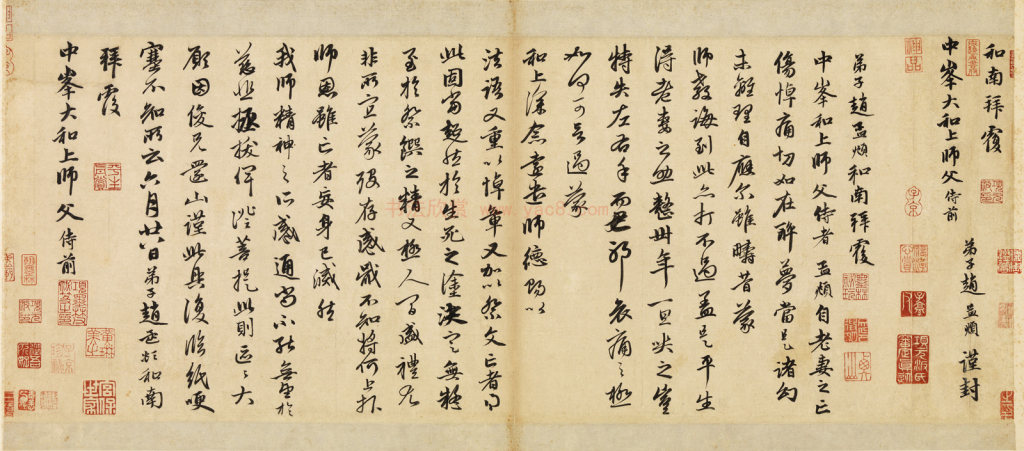 和南拜覆
中峯大和上師父侍前
弟子趙孟頫謹封
弟子趙孟頫和南拜覆
中峯和上師父侍者孟頫自老妻之亡
傷悼痛切如在醉夢當是諸幻
未離理自應尔雖疇昔蒙
師教誨到此亦打不過盖是平生
得老妻之助整卅年一旦哭之豈
特失左右手而已耶哀痛之極
如何可言過蒙
和上深念遠遣師德賜以
法語又重以悼章又加以祭文亡者得
此固當超然於生死之塗決定無疑
至於祭饌之精又極人間盛禮尤
非所宜蒙歿存感戴不知將何上報
師恩雖亡者妄身已滅然
我師精神之所感通尚不能無望於
慈悲拯拔俾證菩提此則區區大
願因俊兄還山謹此具復臨紙哽
塞不知所云六月廿八日弟子趙孟頫和南
拜覆
中峯大和上師父侍前